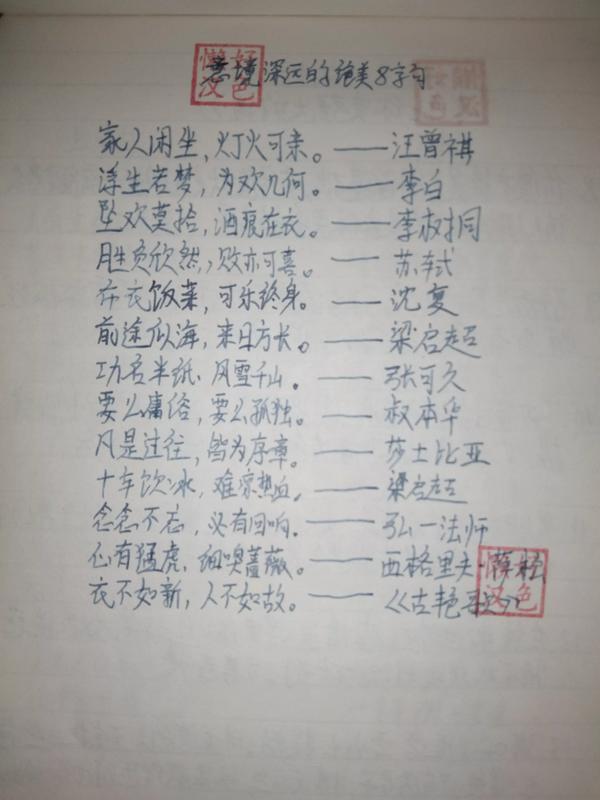 意境深远的绝美8字句
懒好
汉色
家人闲坐，灯火可亲。——汪曾祺
浮生若梦，为欢几何。——李白
坠欢莫拾，酒痕在衣。——李叔同
胜负欣然，败亦可喜。——苏轼
布衣饭菜，可乐终身。——沈复
前途似海，来日方长。——梁启超
功名半纸，风雪千山。——张可久
要么庸俗，要么孤独。——叔本华
凡是过往，皆为序章。——莎士比亚
十年饮冰，难凉热血。——梁启超
念念不忘，必有回响。——弘一法师
心有猛虎，细嗅蔷薇。——西格里夫·
衣不如新，人不如故。——《古艳歌》
汉色